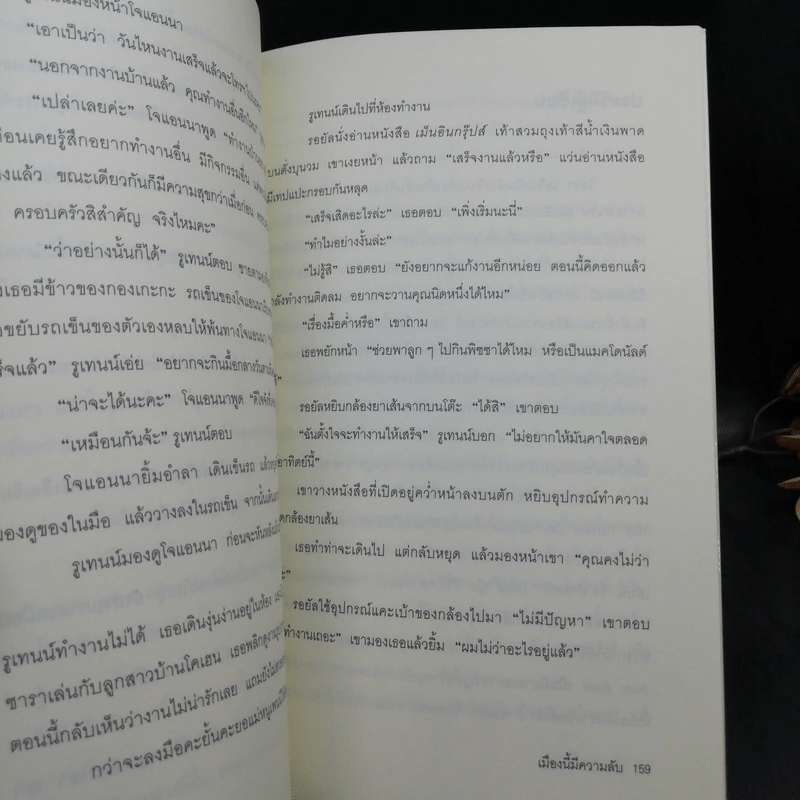 มองหน้าโจแอนนา
“เอาเป็นว่า วันไหนงานเสร็จแล้วจะโทร
“นอกจากงานบ้านแล้ว คุณทำงานอื่น
“เปล่าเลยค่ะ” โจแอนนาพูด
ก่อนเคยรู้สึกอยากทำงานอื่น มีกิจกรรมอื่น
แล้ว ขณะเดียวกันก็มีความสุขกว่าเมื่อก่อน
ครอบครัวสิสำคัญ จริงไหมคะ”
“ว่าอย่างนั้นก็ได้” รูเทนน์ตอบ
เธอมีข้าวของกองเกะกะ รถเข็นของโจแอนนา
ขยับรถเข็นของตัวเองหลบให้พ้นทางโจแอนนา
แล้ว” รูเทนน์เอ่ย “อยากจะกินมื้อกลางวัน
“น่าจะได้นะคะ” โจแอนนาพูด
“เหมือนกันจ้ะ” รูเทนน์ตอบ
โจแอนนายิ้มอำลา เดินเข็นรถ
มองดูของในมือ แล้ววางลงในรถเข็น
รูเทนน์มองดูโจแอนนา ก่อนจะหัน
รูเทนน์ทำงานไม่ได้ เธอเดินงุ่นง่านอยู่ในห้อง
ซาราเล่นกับลูกสาวบ้านโคเฮน เธอพลิกดูงาน
ตอนนี้กลับเห็นว่างานไม่น่ารักเลย แถมยังไม่
กว่าจะลงมือคะยั้นคะยอแม่หนูเทน
รูเทนน์เดินไปที่ห้องทำงาน
รอยัลนั่งอ่านหนังสือ เม็นอินกรุ๊ปส์ เท้าสวมถุงเท้าสีน้ำเงินพาด
บนตั่งบุนวม เขาเงยหน้า แล้วถาม “เสร็จงานแล้วหรือ” แว่นอ่านหนังสือ
มีเทปแปะกรอบกันหลุด
“เสร็จเสิดอะไรล่ะ” เธอตอบ “เพิ่งเริ่มนะนี่”
“ทำไมอย่างงั้นล่ะ”
“ไม่รู้สิ” เธอตอบ “ยังอยากจะแก้งานอีกหน่อย ตอนนี้คิดออกแล้ว
ลังทำงานติดลม อยากจะวานคุณนิดหนึ่งได้ไหม”
“เรื่องมื้อค่ำหรือ” เขาถาม
เธอพยักหน้า “ช่วยพาลูก ๆ ไปกินพิซซาได้ไหม หรือเป็นแมคโดนัลด์
รอยัลหยิบกล่องยาเส้นจากบนโต๊ะ “ได้สิ” เขาตอบ
“ฉันตั้งใจจะทำงานให้เสร็จ” รูเทนน์บอก “ไม่อยากให้มันคาใจตลอด
อาทิตย์นี้”
เขาวางหนังสือที่เปิดอยู่คว่ำหน้าลงบนตัก หยิบอุปกรณ์ทำความ
กล้องยาเส้น
เธอทำท่าจะเดินไป แต่กลับหยุด แล้วมองหน้าเขา “คุณคงไม่ว่า
รอยัลใช้อุปกรณ์แคะเบ้าของกล้องไปมา “ไม่มีปัญหา” เขาตอบ
ทำงานเถอะ” เขามองเธอแล้วยิ้ม “ผมไม่ว่าอะไรอยู่แล้ว”
เมืองนี้มีความลับ 159